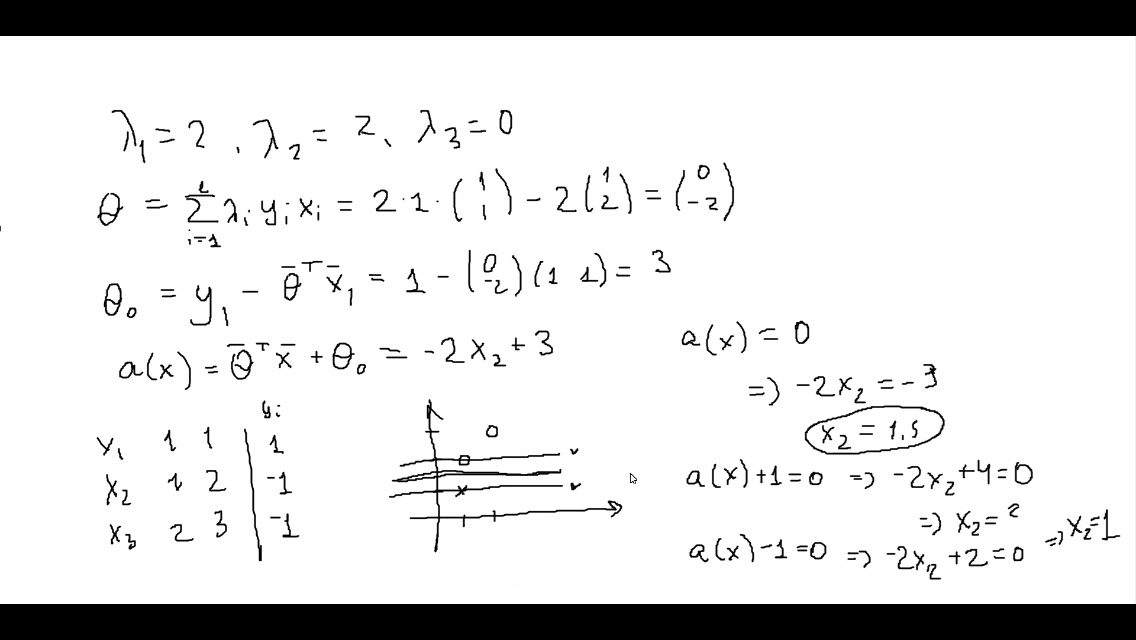 λ₁ = 2 , λ₂ = 2, λ₃ = 0
θ = Σ_{i=1}^{l} λᵢ yᵢ xᵢ = 2·1·(1 1) − 2(1 2) = (0 −2)
θ₀ = y₁ − θ̄ᵀx̄₁ = 1 − (0 −2)(1 1) = 3
a(x) = θ̄ᵀx̄ + θ₀ = −2x₂ + 3
yᵢ
x₁ 1 1 1
x₂ 1 2 −1
x₃ 2 3 −1
a(x) = 0
=> −2x₂ = −3
x₂ = 1,5
a(x)+1=0 => −2x₂+4=0
=> x₂ = 2
a(x)−1=0 => −2x₂+2=0 => x₂=1